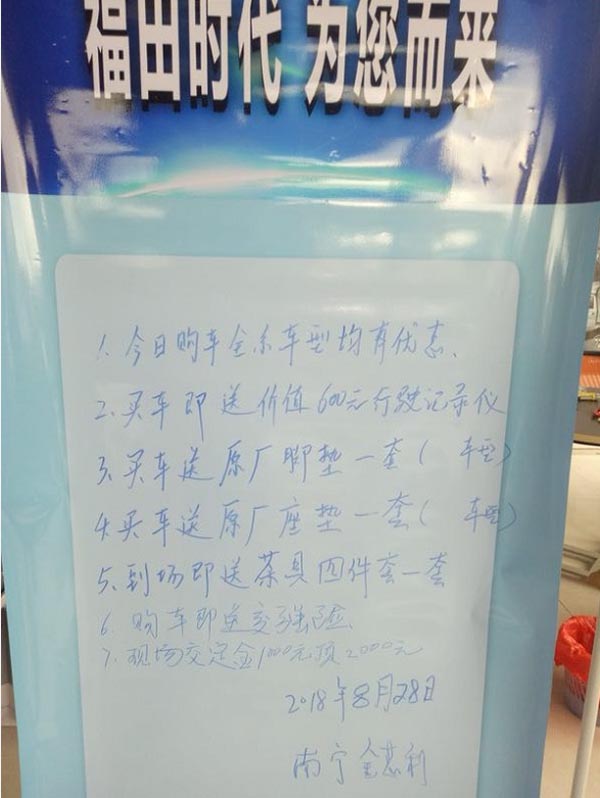 福田时代 为您而来
1. 今日购车全系车型均有优惠、
2. 买车即送价值600元行驶记录仪
3. 买车送原厂脚垫一套( 车型)
4. 买车送原厂座垫一套( 车型)
5. 到场即送茶具四件套一套
6. 购车即送交强险、
7. 现场交定金1000元顶2000元
2018年8月28日
南宁金慈利